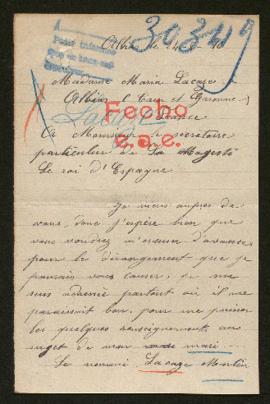 30349
Albias le 24
Madame Maria Lacaze
Albias (Tarn et Garonne)
France
Fecho
c.a.e.
A Monsieur le secrétaire
particulier de Sa Magesté
Le roi d'Espagne
Je viens auprès de
vous, donc j'espère bien que
vous voudrez m'excuser d'avance
pour le dérangement que je
pourrais vous causer, je me
suis adressée partout où il me
paraissait bon, pour me
les quelques renseignements au
suget de mon mari
Le nommé Lacaze Martin